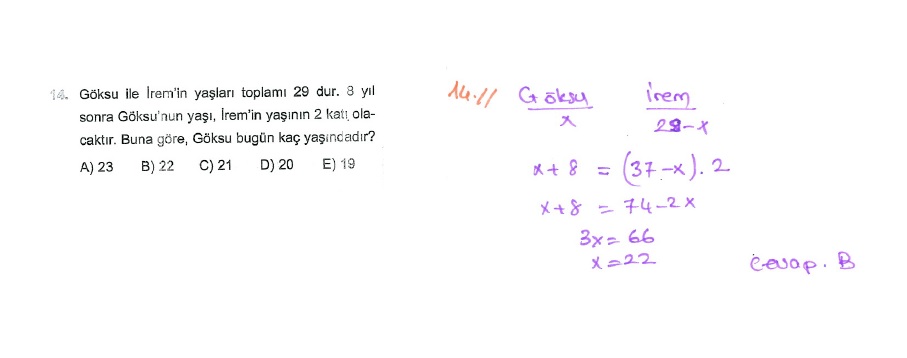 14. Göksu ile İrem'in yaşları toplamı 29 dur. 8 yıl
sonra Göksu'nun yaşı, İrem'in yaşının 2 katı ola-
caktır. Buna göre, Göksu bugün kaç yaşındadır?
A) 23 B) 22 C) 21 D) 20 E) 19
14.//
Göksu İrem
x 29-x
x+8 = (37-x).2
x+8 = 74-2x
3x=66
x=22
Cevap. B